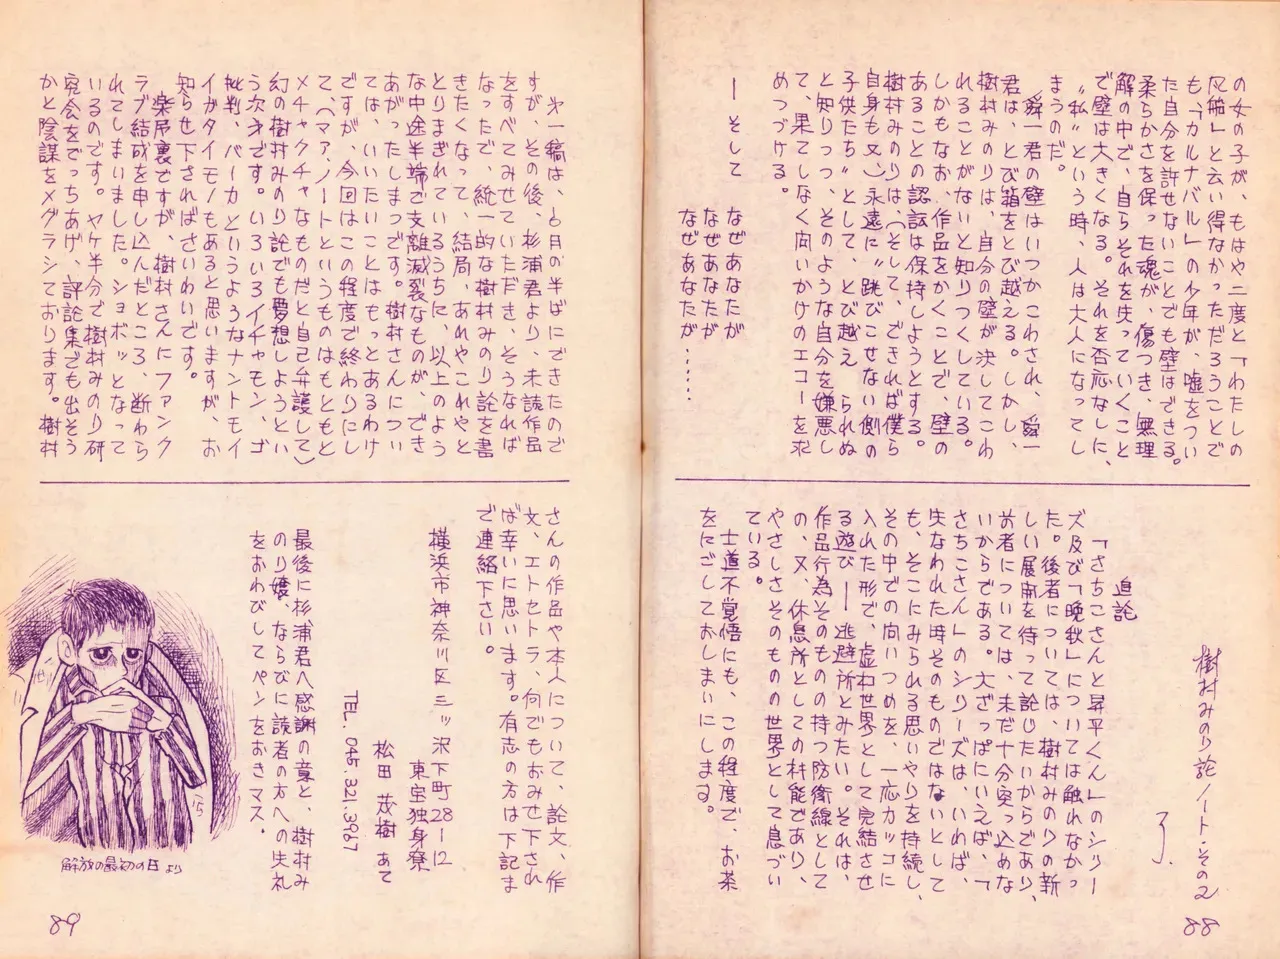 の女の子が、もはや二度と「わたしの
尻船」と云い得なかっただろうことで
も、「カルナバル」の少年が、嘘をつい
た自分を許せないことでも壁はできる。
柔らかさを保った魂が、傷つき、無理
解の中で、自らそれを失っていくこと
で壁は大きくなる。それを否応なしに、
〝私〟という時、人は大人になってし
まうのだ。
舜一君の壁はいつかこわされ、舜一
君は、とび箱をとび越える。しかし、
樹村みのりは、自分の壁が決してこわ
れることがないと知りつくしている。
しかもなお、作品をかくことで、壁の
あることの認識は保持しようとする。
樹村みのりは（そして、できれば僕ら
自身も又）永遠に〝跳びこせない側の
子供たち〟として、とび越えられぬ
と知りつつ、そのような自分を嫌悪し
て、果てしなく向いかけのエコーを求
めつづける。
ー そして
なぜあなたが
なぜあなたが
なぜあなたが……
樹村みのり論ノート・その2
了.
追記
「さちこさんと昇平くん」のシリー
ズ及び「晩秋」については触れなかっ
た。後者については、樹村みのりの新
しい展開を待って論じたいからであり、
前者については、未だ十分突っ込めな
いからである。大ざっぱにいえば、「
さちこさん」のシリーズは、いわば、
失なわれた時そのものではないとして
も、そこにみられる思いやりを持続し、
その中での向いつめを、一応カッコに
入れた形で、虚わ世界として完結させ
る遊び ー 逃避所とみたい。それは、
作品行為そのものの持つ防衛線として
の、又、休息所としての機能であり、
やさしさそのものの世界として息づい
ている。
士道不覚悟にも、この程度で、お茶
をにごしておしまいにします。
88
第一稿は、6月の半ばにできたので
すが、その後、杉浦君より、未読作品
をすべてみせていただき、そうなれば
なったで、統一的な樹村みのり論を書
きたくなって、結局、あれやこれやと
とりまぎれているうちに、以上のよう
な中途半端で支離滅裂なものが、でき
あがったしまつです。樹村さんについ
ては、いいたいことはもっとあるわけ
ですが、今回はこの程度で終わりにし
て、（マァ、ノートというものはもともと
メチャクチャなものだと自己弁護して）
幻の樹村みのり論でも夢想しようとい
う次才です。いろいろイチャモン、ゴ
批判、バーカというようなナントモイ
イガタイモノもあると思いますが、お
知らせ下さればさいわいです。
楽屋裏ですが、樹村さんにファンク
ラブ結成を申し込んだところ、断わら
れてしまいました。ショボッとなって
いるのです。ヤケ半分で樹村みのり研
究会をでっちあげ、評論集でも出そう
かと陰謀をメグラシております。樹村
さんの作品や本人について、論文、作
文、エトセトラ、何でもおみせ下され
ば幸いに思います。有志の方は下記ま
で連絡下さい。
横浜市神奈川区三ッ沢下町28-12
東宝独身寮
松田 茂樹 あて
TEL. 045. 321. 3967
最後に杉浦君へ感謝の意と、樹村み
のり嬢、ならびに読者の方への失礼
をおわびしてペンをおきマス。
解放の最初の日より
89